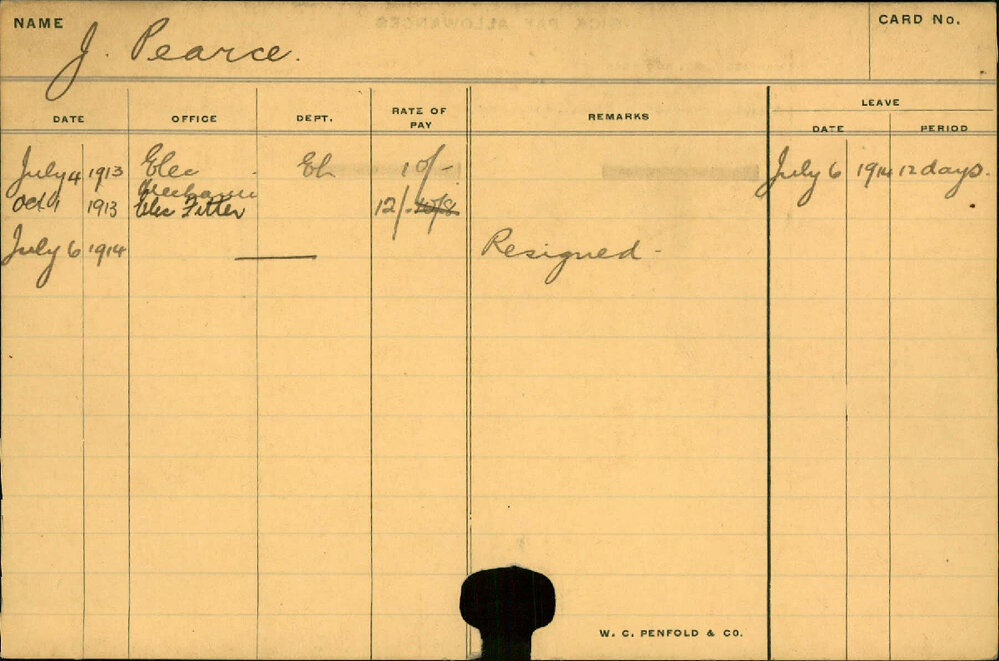 NAME J. Pearce. CARD No.
DATE OFFICE DEPT. RATE OF PAY REMARKS LEAVE
DATE PERIOD
July 4 1913 Elec Mechanic EL 10/- July 6 1914 12 days.
Oct 1 1913 Elec Fitter 12/- 10/8
July 6 1914 Resigned -
W. C. PENFOLD & CO.